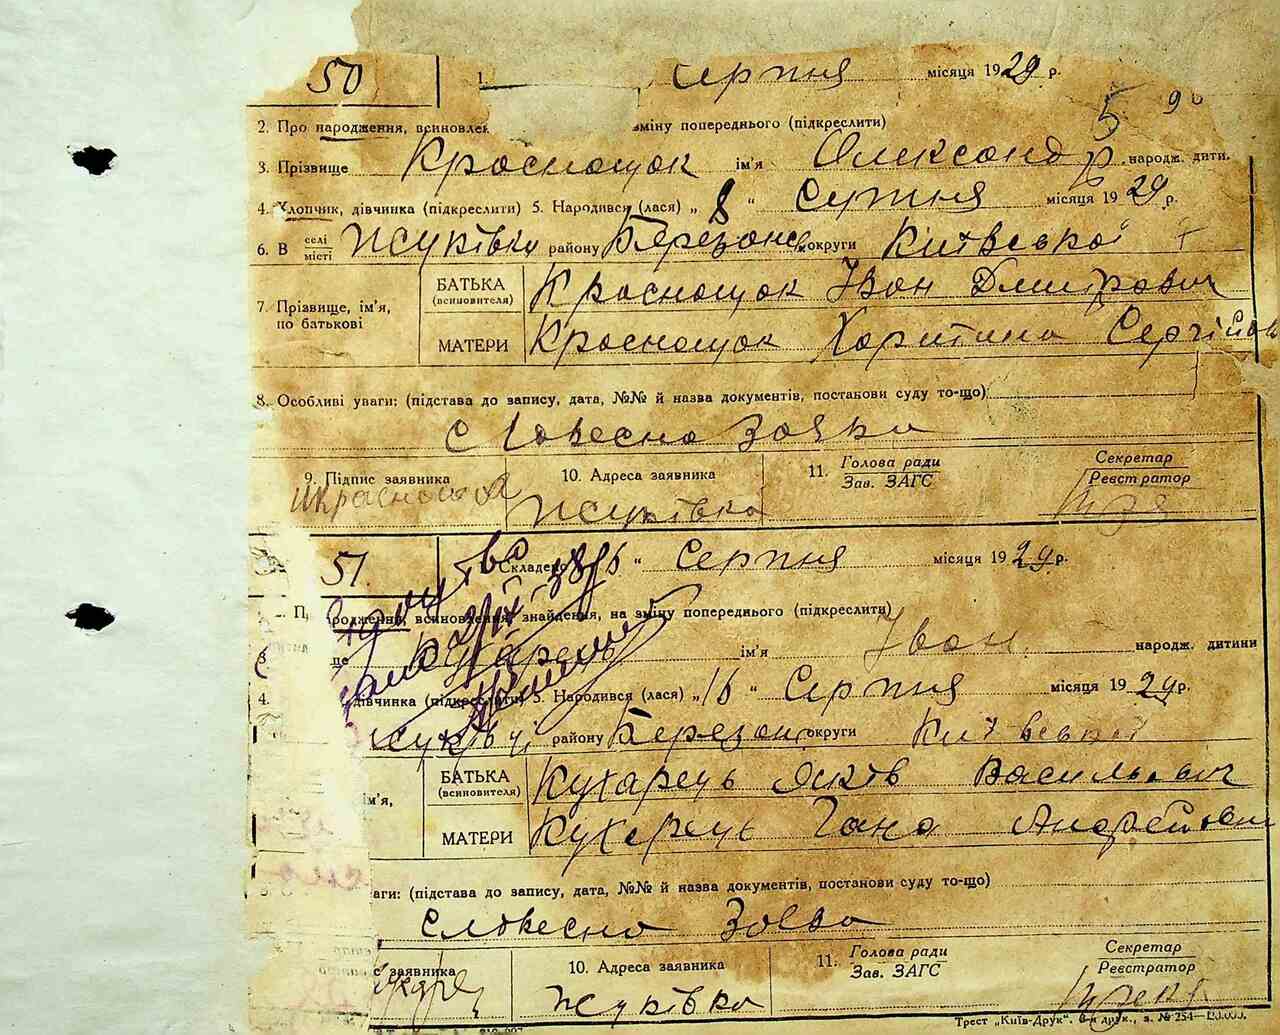 50 1. Серпня місяця 1929 р.
5 90
2. Про народження, всиновлен зміну попереднього (підкреслити)
3. Прізвище Краснощок ім'я Олександр народж. дитини.
4. Хлопчик, дівчинка (підкреслити) 5. Народився (лася) „ 8 “ Серпня місяця 1929 р.
6. В селі місті Жуківка району Березансь. округи Київської
7. Прізвище, ім'я, по батькові БАТЬКА (всиновителя) Краснощок Іван Дмитрович
МАТЕРИ Краснощок Харитина Сергійов
8. Особливі уваги: (підстава до запису, дата, №№ й назва документів, постанови суду то-що)
словесна заява
9. Підпис заявника 10. Адреса заявника 11. Голова ради Зав. ЗАГС Секретар Реєстратор
Жуківка
51. Складено 16 “ Серпня місяця 1929 р.
родження, всиновлення, знайдення, на зміну попереднього (підкреслити)
3 ще Кухарець ім'я Іван народж. дитини
4. дівчинка (підкреслити) 5. Народився (лася) „ 16 “ Серпня місяця 1929 р.
Жуківці району Березан. округи Київської
ім'я, БАТЬКА (всиновителя) Кухарець Яків Васильович
МАТЕРИ Кухарець Гана Андреївни
ваги: (підстава до запису, дата, №№ й назва документів, постанови суду то-що)
словесна заява
с заявника 10. Адреса заявника 11. Голова ради Зав. ЗАГС Секретар Реєстратор
Жуківка
Трест „Київ-Друк“. 6-я друк., з. № 254—120.000.